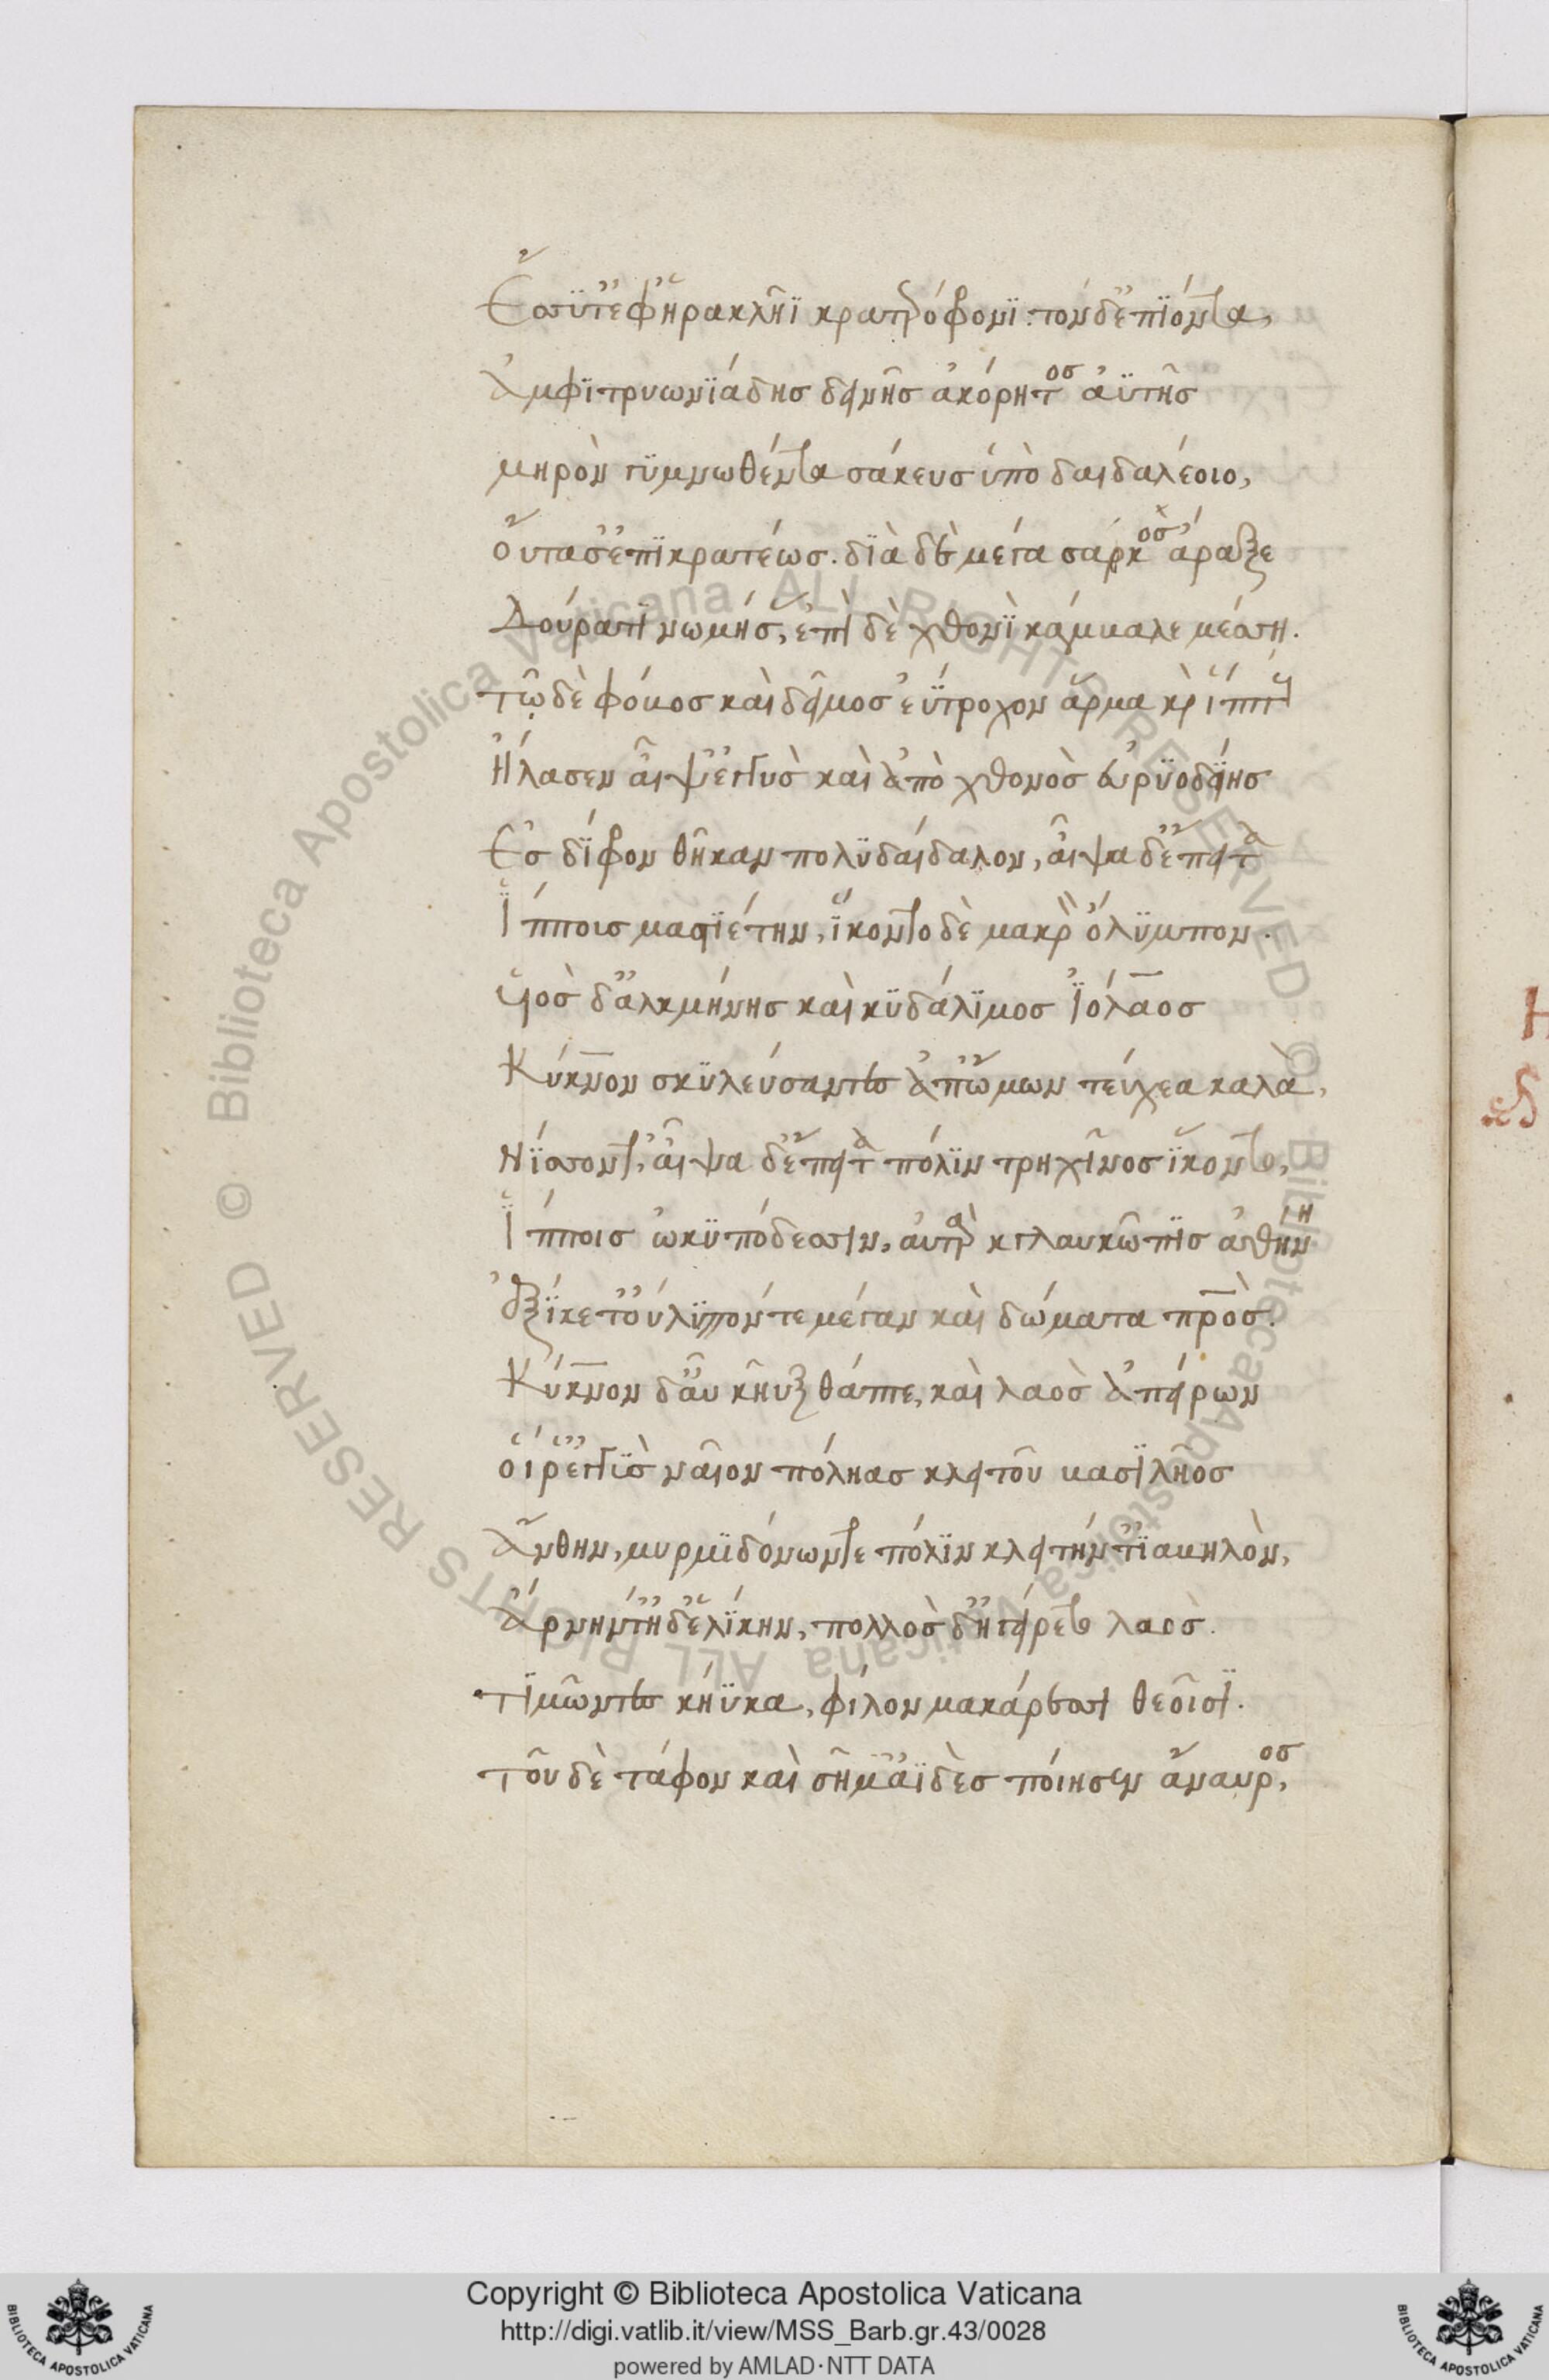 Ἔσσυτ' ἐφ' Ἡρακλῆϊ κρατερόφρονι· τὸν δ' ἐπιόντα,
Ἀμφιτρυωνιάδης δεινῆς ἀκόρητος ἀϋτῆς
μηρὸν γυμνωθέντα σάκευς ὑπὸ δαιδαλέοιο,
οὔτασ' ἐπικρατέως. διὰ δὲ μέγα σαρκὸς ἄραξε
Δούρατι νωμήσ, ἐπὶ δὲ χθονὶ κάμβαλε μέσση.
τῷ δὲ φόβος καὶ δεῖμος ἐΰτροχον ἅρμα καὶ ἵππους
Ἤλασεν αἶψ' ἐγγὺς καὶ ἀπὸ χθονὸς εὐρυοδείης
Ἐς δίφρον θῆκαν πολυδαίδαλον, αἶψα δ' ἔπειτα
Ἵπποις μαστιέτην, ἵκοντο δὲ μακρὸν ὄλυμπον.
υἱὸς δ' ἀλκμήνης καὶ κυδάλιμος Ἰόλαος
Κύκνον σκυλεύσαντες ἀπ' ὤμων τεύχεα καλὰ,
Νίσσοντ', αἶψα δ' ἔπειτα πόλιν τρηχῖνος ἵκοντο,
Ἵπποις ὠκυπόδεσσιν, αὐτὰρ γλαυκῶπις ἀθήνη
ἐξίκετ' οὔλυμπόν τε μέγαν καὶ δώματα πατρός.
Κύκνον δ' αὖ κῆυξ θάπτε, καὶ λαὸς ἀπείρων
οἵ ῥ' ἐγγὺς ναῖον πόληας κλειτοῦ βασιλῆος
Ἄνθην, μυρμιδόνων τε πόλιν κλειτήν τ' ἰαωλκὸν,
Ἄρνην τ' ἠδ' ἑλίκην, πολλὸς δ' ἠγείρετο λαὸς.
τιμῶντες κήϋκα, φίλον μακάρεσσι θεοῖσι.
τοῦ δὲ τάφον καὶ σῆμ' ἀϊδὲς ποίησεν ἄναυρος,
Copyright © Biblioteca Apostolica Vaticana
http://digi.vatlib.it/view/MSS_Barb.gr.43/0028
powered by AMLAD·NTT DATA